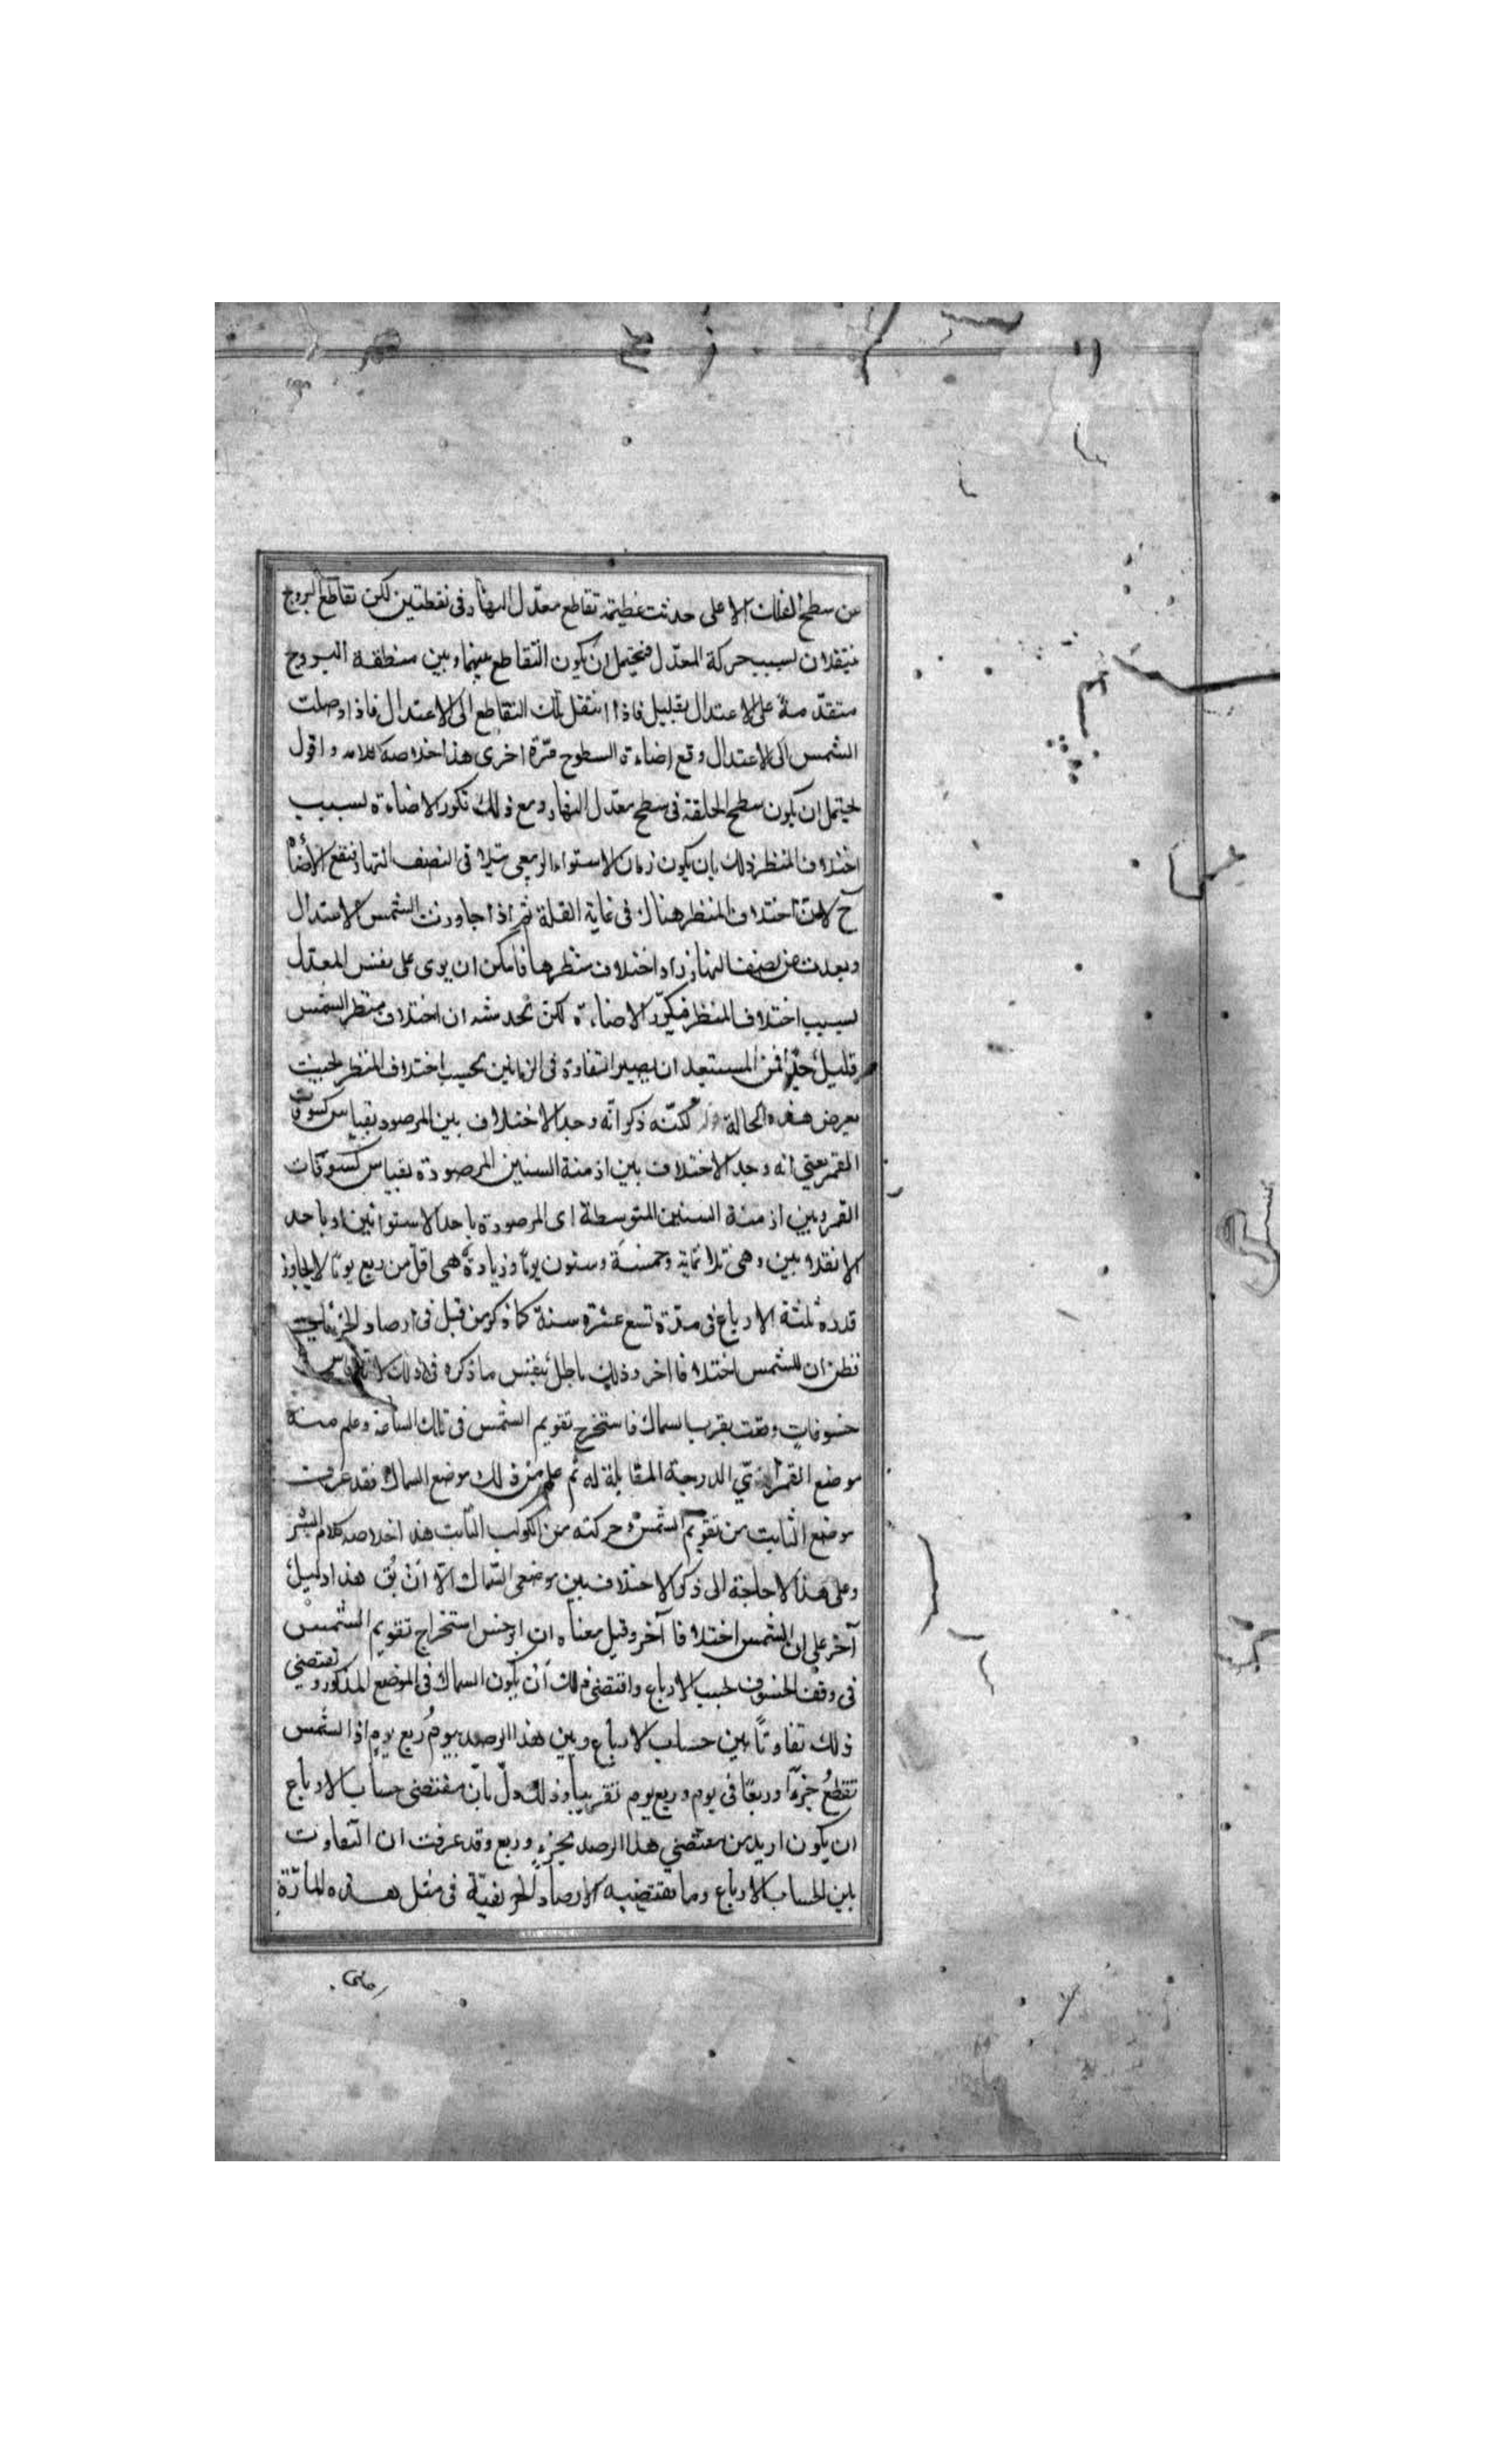 من سطح الفلك الاعلى حدثت عظيمة تقاطع معدّل النهار فى نقطتين لكن تقاطع البروج
ينتقلان لسبب حركة المعدّل فيحتمل ان يكون التقاطع بينهما وبين منطقة البروج
متقدّمة على الاعتدال بقليل فاذا انتقل ذلك التقاطع الى الاعتدال فاذا وصلت
الشمس الى الاعتدال وقع اضاءة السطوح مرّة اخرى هذا خلاصة كلامه واقول
يحتمل ان يكون سطح الحلقة فى سطح معدّل النهار ومع ذلك تكرر الاضاءة لسبب
اختلاف المنظر وذلك بان يكون زمان الاستواء الربيعى مثلا فى النصف النهار فتقع الأضاة
ح لان اختلاف المنظر هناك فى غاية القلة ثم اذا جاوزت الشمس الاعتدال
وبعدت عن نصف النهار زاد اختلاف منظرها فامكن ان يرى على نفس المعدّل
لسبب اختلاف المنظر فيكرّر الاضاءة لكن يخدشه ان اختلاف منظر الشمس
قليل جدّا فمن المستبعد ان يصير التفاوة فى الزمانين بحسب اختلاف المنظر بحيث
يعرض هذه الحالة لكنّه ذكر انّه وجد الاختلاف بين المرصود بقياس كسوفات
القمر يعنى انه وجد الاختلاف بين ازمنة السنين المرصودة بقياس كسوفات
القمر وبين ازمنة السنين المتوسطة اى المرصودة باحد الاستوائين او باحد
الانقلابين وهى ثلاثماية وخمسة وستون يومًا وزيادة هى اقل من ربع يوم لا يجاوز
قدره ثلثة الارباع فى مدّة تسع عشرة سنة كما ذكر من قبل فى ارصاد الخريفيات
فظن ان للشمس اختلافا اخر وذلك باطل بنفس ما ذكره فى ذلك لانه قاس
خسوفاتٍ وقعت بقرب السماك فاستخرج تقويم الشمس فى تلك الساعة وعلم منه
موضع القمر الدرجة المقابلة له ثم علم من ذلك موضع السماك فقد عرفت
موضع الثابت من تقويم الشمس وحركته من الكواكب الثابت هذا خلاصة كلام الشر
وعلى هذا لا حاجة الى ذكر الاختلاف بين موضعى السماك الّا ان يق هذا دليل
آخر على ان للشمس اختلافا آخر وقيل معناه ان ابرخس استخراج تقويم الشمس
فى وقت الخسوف بحسب الارباع واقتضى ذلك أن يكون السماك فى الموضع المذكور ويقتضى
ذلك تفاوتًا بين حساب الارباع وبين هذا الرصد بيوم وربع يومٍ اذ الشمس
تقطع جزءًا وربعًا فى يوم وربع يوم تقريبا وذلك دلّ بانّ مقتضى حساب الارباع
ان يكون ازيد من مقتضى هذا الرصد بجزءٍ وربع وقد عرفت ان التفاوت
بين الحساب الارباع وما يقتضيه الارصاد الخريفيّة فى مثل هذه المدّة